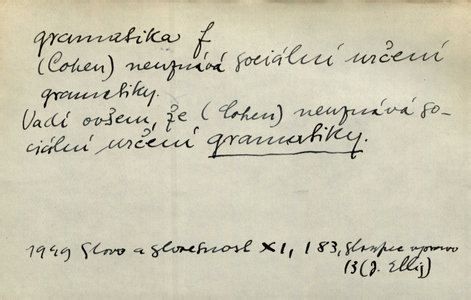 gramatika f
(Cohen) neuznává sociální určení
gramatiky.
Vadí ovšem, že (Cohen) neuznává so-
ciální určení gramatiky.
1949 Slovo a slovesnost XI, 183, sloupec vpravo
13 (J. Ellij)